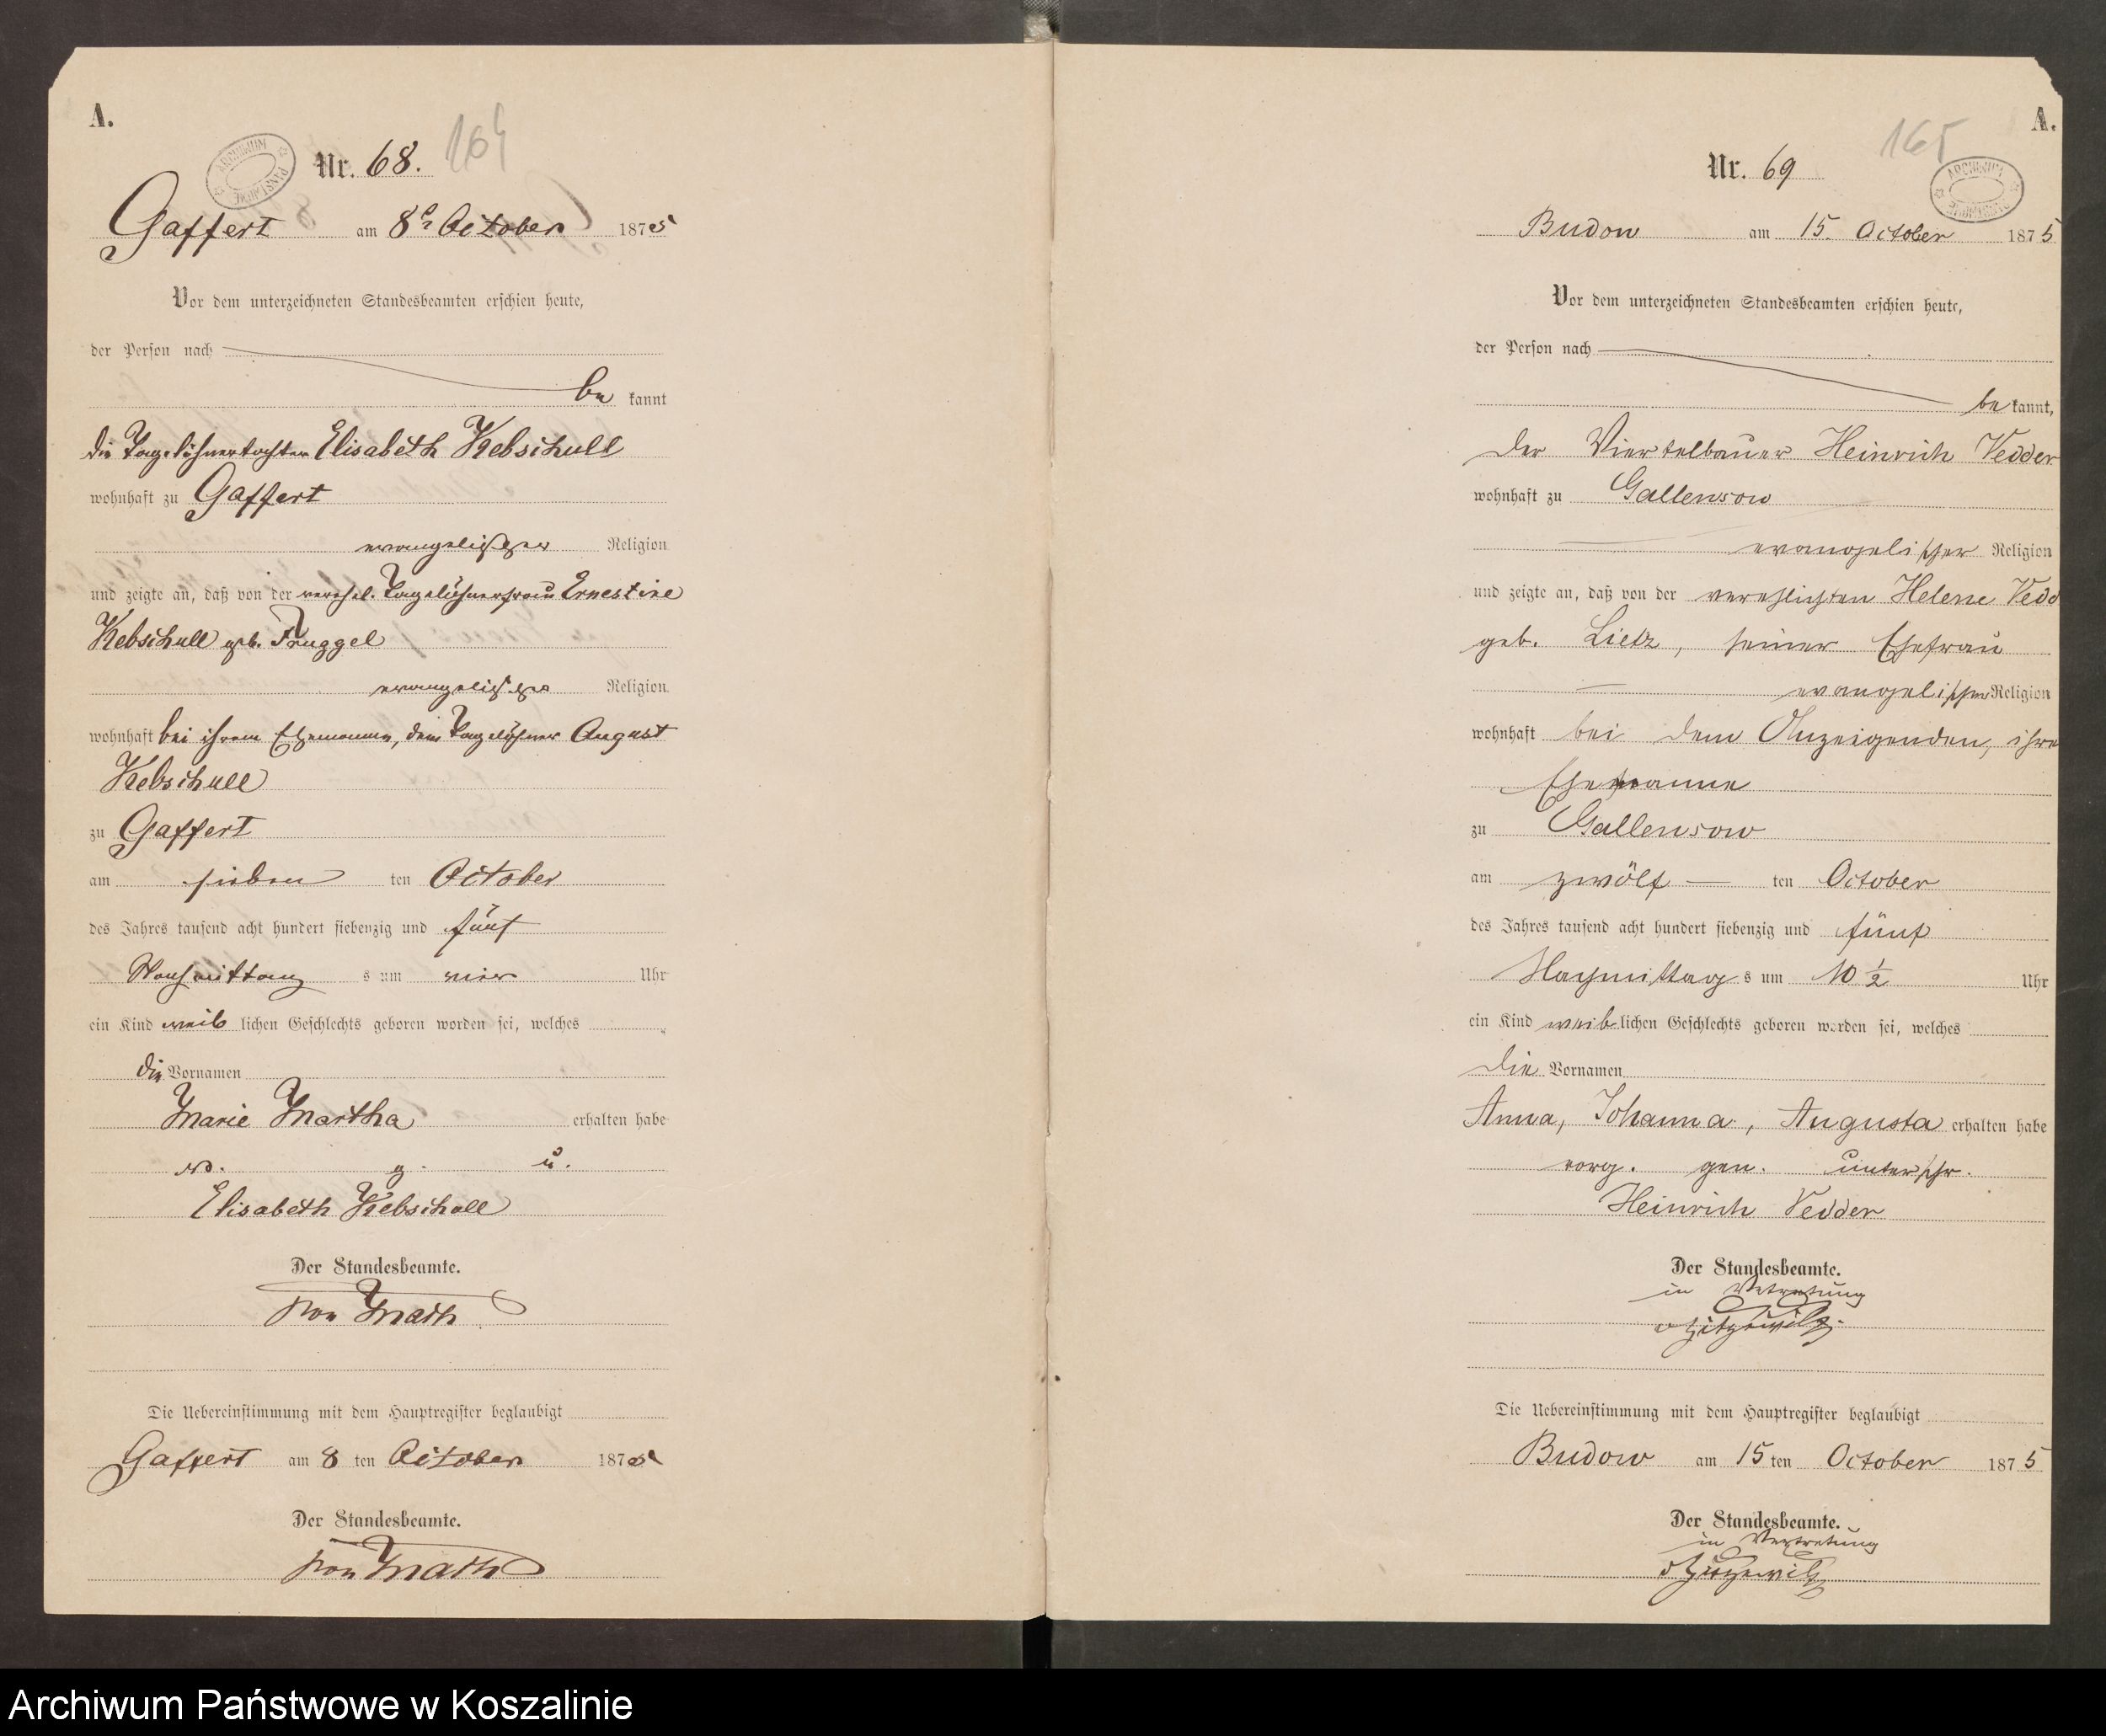 A.
164
Nr. 68.
Gaffert am 8ⁿ October 1875
Vor dem unterzeichneten Standesbeamten erschien heute,
der Person nach
be kannt
die Tagelöhnertochter Elisabeth Kebschull
wohnhaft zu Gaffert
evangelischer Religion
und zeigte an, daß von der verehel. Tagelöhnerfrau Ernestine
Kebschull geb.
evangelischer Religion
wohnhaft bei ihrem Ehemanne, dem Tagelöhner August
Kebschull
zu Gaffert
am sieben ten October
des Jahres tausend acht hundert siebenzig und fünf
Nachmittag s um vier Uhr
ein Kind weib lichen Geschlechts geboren worden sei, welches
die Vornamen
Marie Martha erhalten habe
v. g. u.
Elisabeth Kebschull
Der Standesbeamte.
Die Uebereinstimmung mit dem Hauptregister beglaubigt
Gaffert am 8 ten October 1875
Der Standesbeamte.
A.
165
Nr. 69
Budow am 15. October 1875
Vor dem unterzeichneten Standesbeamten erschien heute,
der Person nach
be kannt,
der Viertelbauer Heinrich Vedder
wohnhaft zu Gallensow
evangelischer Religion
und zeigte an, daß von der verehelichten Helene Vedd
geb. Lietz, seiner Ehefrau
evangelischer Religion
wohnhaft bei dem Anzeigenden, ihre
Ehemanne
zu Gallensow
am zwölf ten October
des Jahres tausend acht hundert siebenzig und fünf
Nachmittag s um 10 ½ Uhr
ein Kind weib lichen Geschlechts geboren worden sei, welches
die Vornamen
Anna, Johanna, Augusta erhalten habe
vorg. gen. unterschr.
Heinrich Vedder
Der Standesbeamte.
in Vertretung
Die Uebereinstimmung mit dem Hauptregister beglaubigt
Budow am 15 ten October 1875
Der Standesbeamte.
in Vertretung
Archiwum Państwowe w Koszalinie